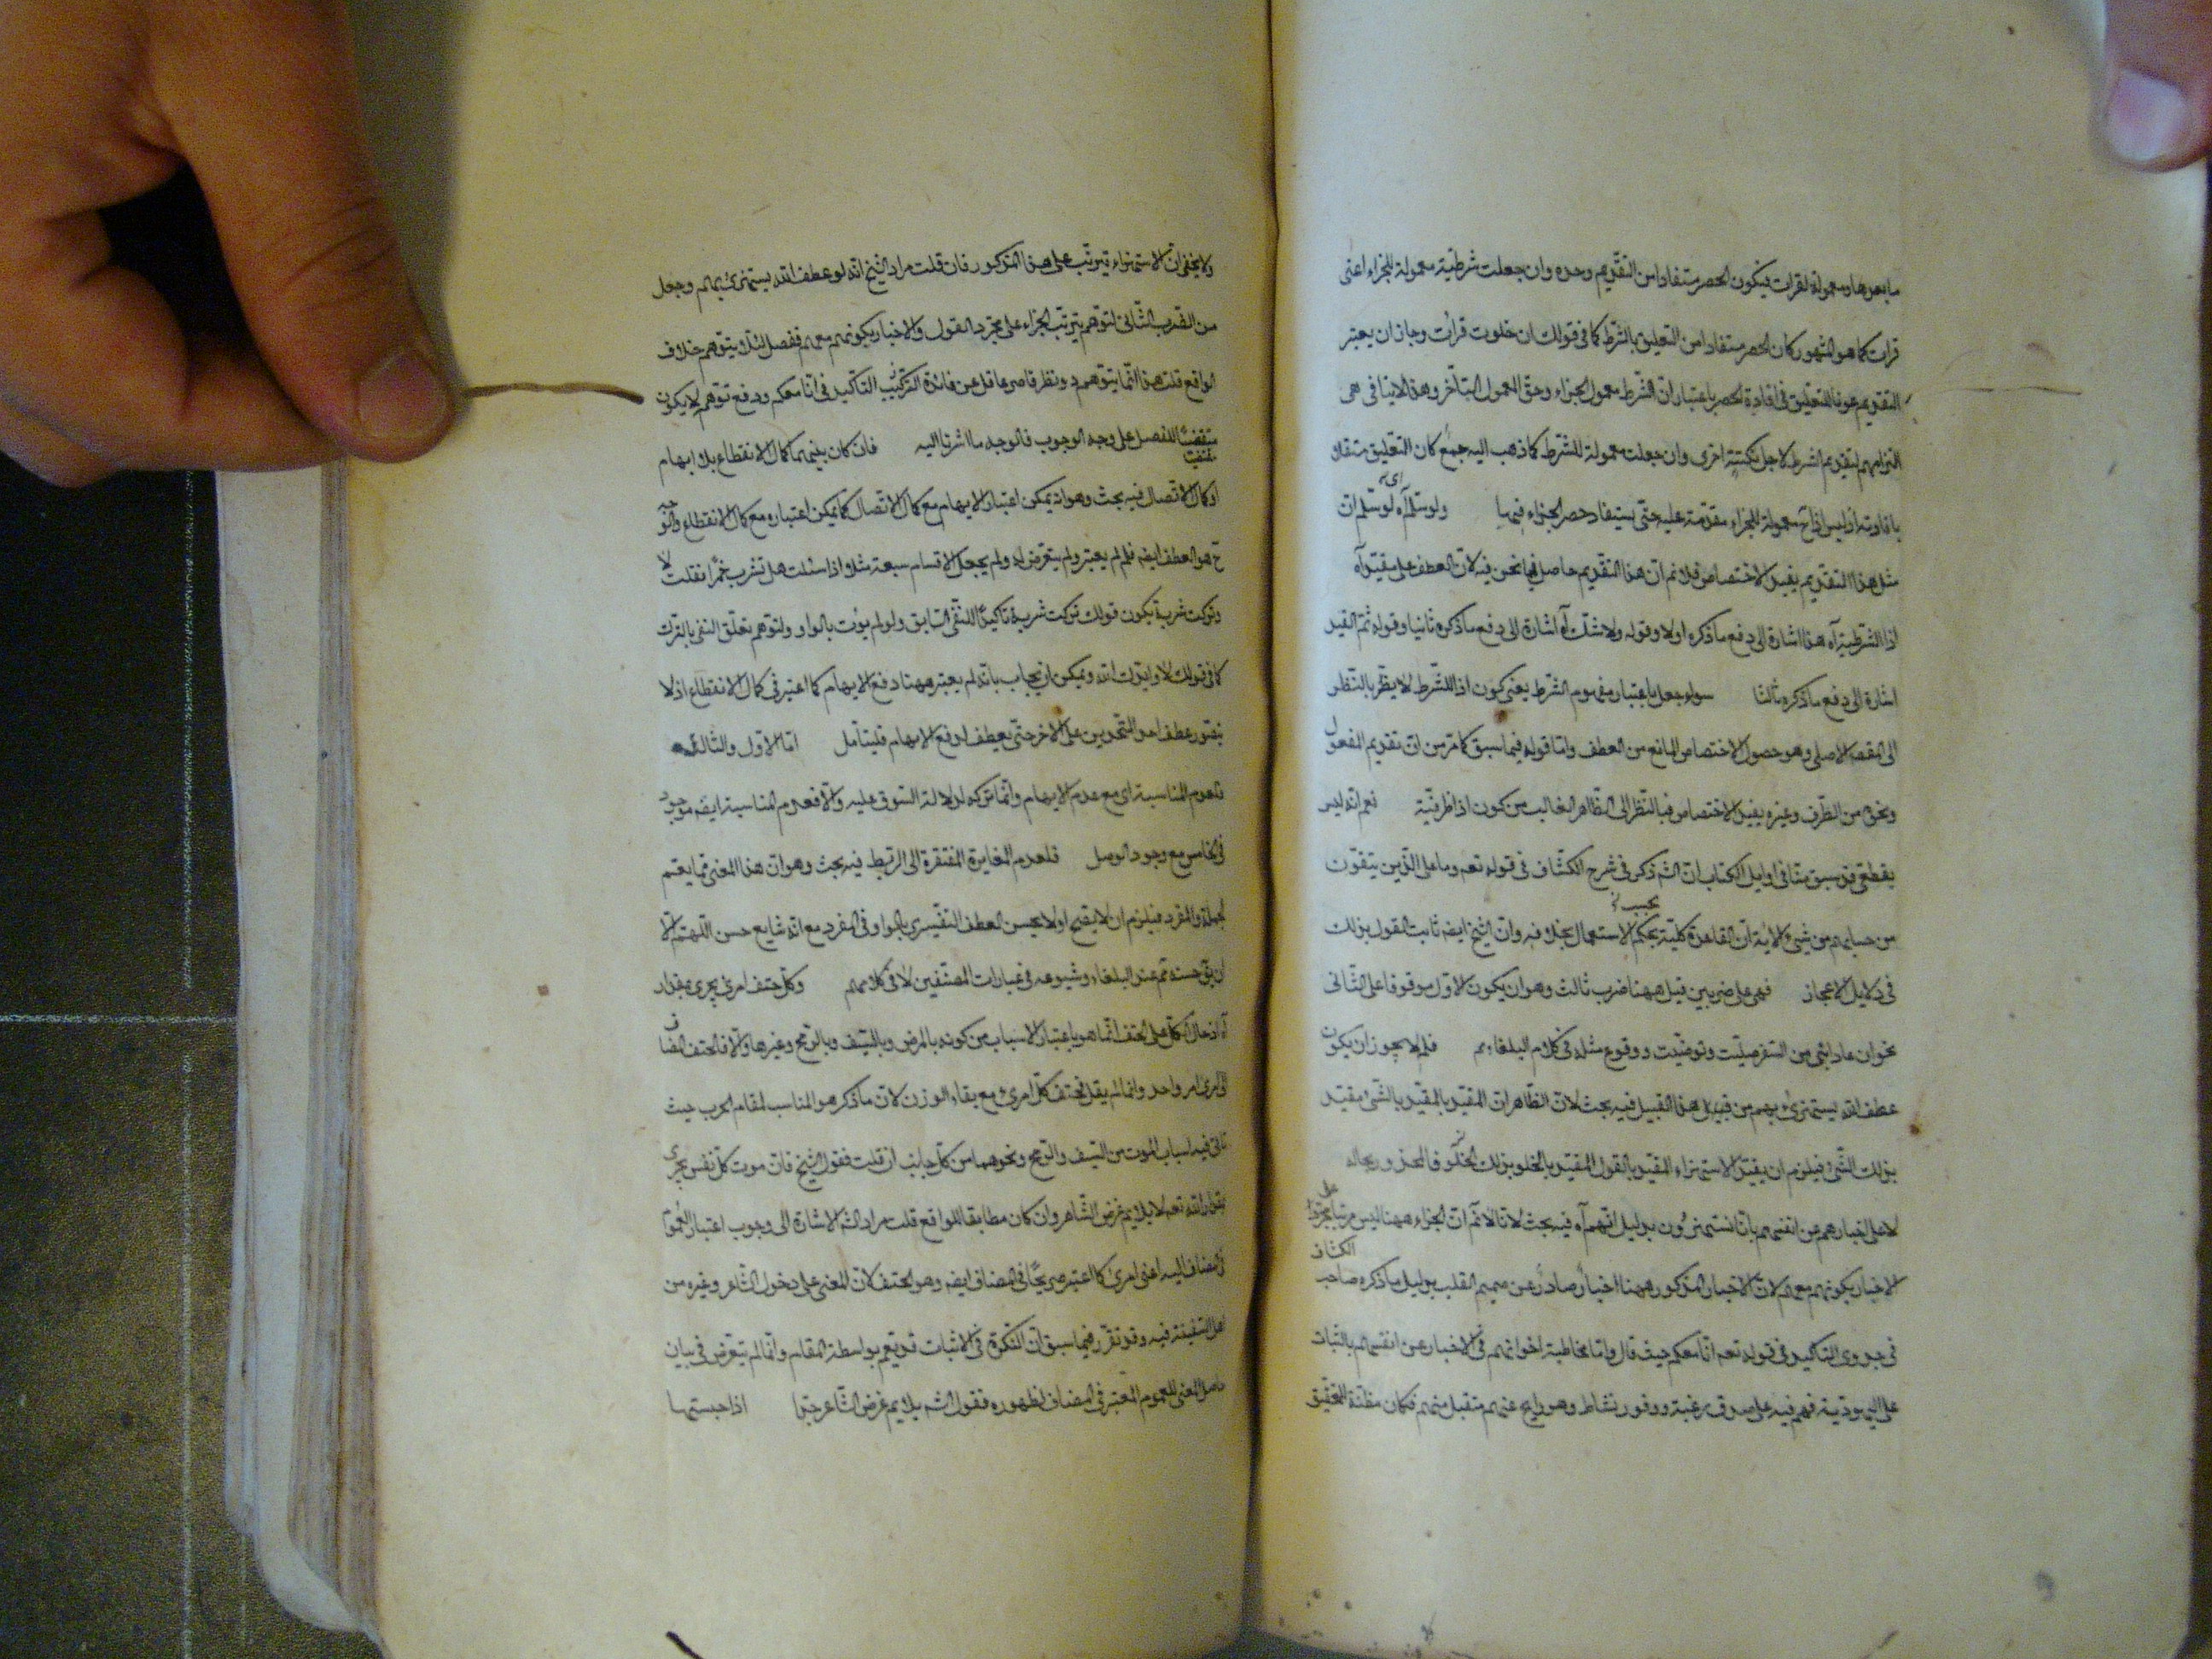 ما بعدها ومعمولة لقرات فيكون الحصر مستفادا من التقديم وحده وان جعلت شرطية معمولة للجزاء اعنى
قرات كما هو المشهور كان الحصر مستفادا من التعليق بالشرط كما فى قولك ان خلوت قرأت وجاز ان يعتبر
التقديم عونا للتعليق فى افادة الحصر باعتبار ان الشرط معمول الجزاء وحق المعمول التأخر وهذا لا ينافى
التزامهم لتقديم الشرط لاجل نكتة اخرى وان جعلت معمولة للشرط كما ذهب اليه جمع كان التعليق مستقلا
بافادته اذ ليس اذا ح معمولة للجزاء مقدمة عليه حتى يستفاد حصر الجزاء فيها ولو سلم آه اى لو سلم ان
مثل هذا التقديم يفيد الاختصاص فلا نم ان هذا التقديم حاصل فيما نحن فيه لان العطف على مقيد آه
اذا الشرطية آه هذا اشارة الى دفع ما ذكره اولا وقوله ولا شك آه اشارة الى دفع ما ذكره ثانيا وقوله ثم القيد
اشارة الى دفع ما ذكره ثالثا سواء جعل باعتبار مفهوم الشرط يعنى كون اذا للشرط لا يظر بالنظر
الى المقصد الاصلى وهو حصول الاختصاص المانع من العطف واما قوله فيما سبق كما مر من ان تقديم المفعول
ونحوه من الظرف وغيره يفيد الاختصاص فبالنظر الى الظاهر الغالب من كون اذا ظرفية نعم انه ليس
بقطعى قد سبق منا فى اوايل الكتاب ان الش ذكر فى شرح الكشاف فى قوله تعه وما على الذين يتقون
من حسابهم من شئ الاية ان القاعدة كلية بحكم الاستعمال بخلافه وان الشيخ ايضه ثابت القول بذلك
فى دلايل الاعجاز فهى على ضربين قيل ههنا ضرب ثالث وهو ان يكون الاول موقوفا على الثانى
ووقوع مثله فى كلام البلغاء فلم لا يجوز ان يكون
عطف الله يستهزئ بهم من قبيل هذا القبيل فيه بحث لان الظاهر ان المقيد بالمقيد بالشئ مقيد
بذلك الشئ فيلزم ان يقيد الاستهزاء المقيد بالقول المقيد بالخلو بذلك الخلو فالمحذور بحاله
لا على اخبارهم عن انفسهم بانا نستهزؤن بدليل انهم آه فيه بحث لانا لا نم ان الجزاء ههنا ليس مرتبا على مجرد
الاخبار بكونهم معهم لان الاخبار المذكور ههنا اخبار صادر عن صميم القلب بدليل ما ذكره صاحب الكشاف
فى جدوى التأكيد فى قوله تعه انا معكم حيث قال واما مخاطبة اخوانهم فى الاخبار عن انفسهم بالثبات
على اليهودية فهم فيه على صدق رغبة ووفور نشاط وهو رايج عنهم متقبل منهم فكان مظنة للتحقيق
ولا يخفى ان الاستهزاء يترتب على هذا المذكور فان قلت مراد الشيخ انه لو عطف الله يستهزئ بهم وجعل
من الضرب الثانى لتوهم يترتب الجزاء على مجرد القول والاخبار بكونهم معهم ففصل لئلا يتوهم خلاف
الواقع قلت هذا انما يتوهمه ذو نظر قاصر غافل عن فائدة التركيب التأكيد فى انا معكم ودفع توهمه لا يكون
مقتضيا للفصل على وجه الوجوب فالوجه ما اشرنا اليه فان كان بينهما كمال الانقطاع بلا ايهام
او كمال الاتصال فيه بحث وهو انه يمكن اعتبار الايهام مع كمال الاتصال كما يمكن اعتباره مع كمال الانقطاع والوجه
ح هو العطف ايضه فلم لم يعتبر ولم يتعرض له ولم يجعل الاقسام سبعة مثلا اذا سئلت هل تشرب خمرا فقلت لا
وتركت شربه يكون قولك تركت شربه تأكيدا للنفى السابق ولو لم يؤت بالواو ولتوهم تعلق النفى بالترك
كما فى قولك لا وايدك الله ويمكن ان يجاب بانه لم يعتبر ههنا دفع الايهام كما اعتبر فى كمال الانقطاع اذ لا
يتصور عطف احد المتحدين على الاخر حتى يعطف لدفع الايهام فليتأمل اما الاول والثالث
فلعدم المناسبة اى مع عدم الايهام وانما تركه لدلالة السوق عليه والا فعدم المناسبة ايضه موجود
فى الخامس مع وجود الوصل فلعدم المغايرة المفتقرة الى الربط فيه بحث وهو ان هذا المعنى مما يعم
الجملة والمفرد فيلزم ان لا يصح او لا يحسن العطف التفسيرى بالواو فى المفرد مع انه شايع حسن اللهم الا
ان يق حسنه ثم عند البلغاء وشيوعه فى عبارات المصنفين لا فى كلامهم وكل حتف امرئ يجرى بمقدار
آه ادخال كل على الحتف انما هو باعتبار الاسباب من كونه بالمرض وبالسيف وبالرمح وغيرها والا فالحتف المضاف
الى امرئ امر واحد وانما لم يقل فحتف كل امرئ مع بقاء الوزن لان ما ذكر هو المناسب لمقام الحرب حيث
تأتى فيه اسباب الموت من السيف والرمح ونحوهما من كل جانب ان قلت فقول الشيخ فان موت كل نفس يجرى
بقدر الله تعه لا يلايم غرض الشاعر وان كان مطابقا للواقع قلت مراد الش الاشارة الى وجوب اعتبار العموم
فى المضاف اليه اعنى امرئ كما اعتبر صريحا فى المضاف ايضه وهو الحتف لان المعنى على دخول الشاعر وغيره من
اهل السفينة فيه وقد تقرر فيما سبق ان النكرة فى الاثبات قد يعم بواسطة المقام وانما لم يتعرض فى بيان
حاصل المعنى للعموم المعتبر فى المضاف لظهوره فقول الش يلايم غرض الشاعر جدا اذا حبستها